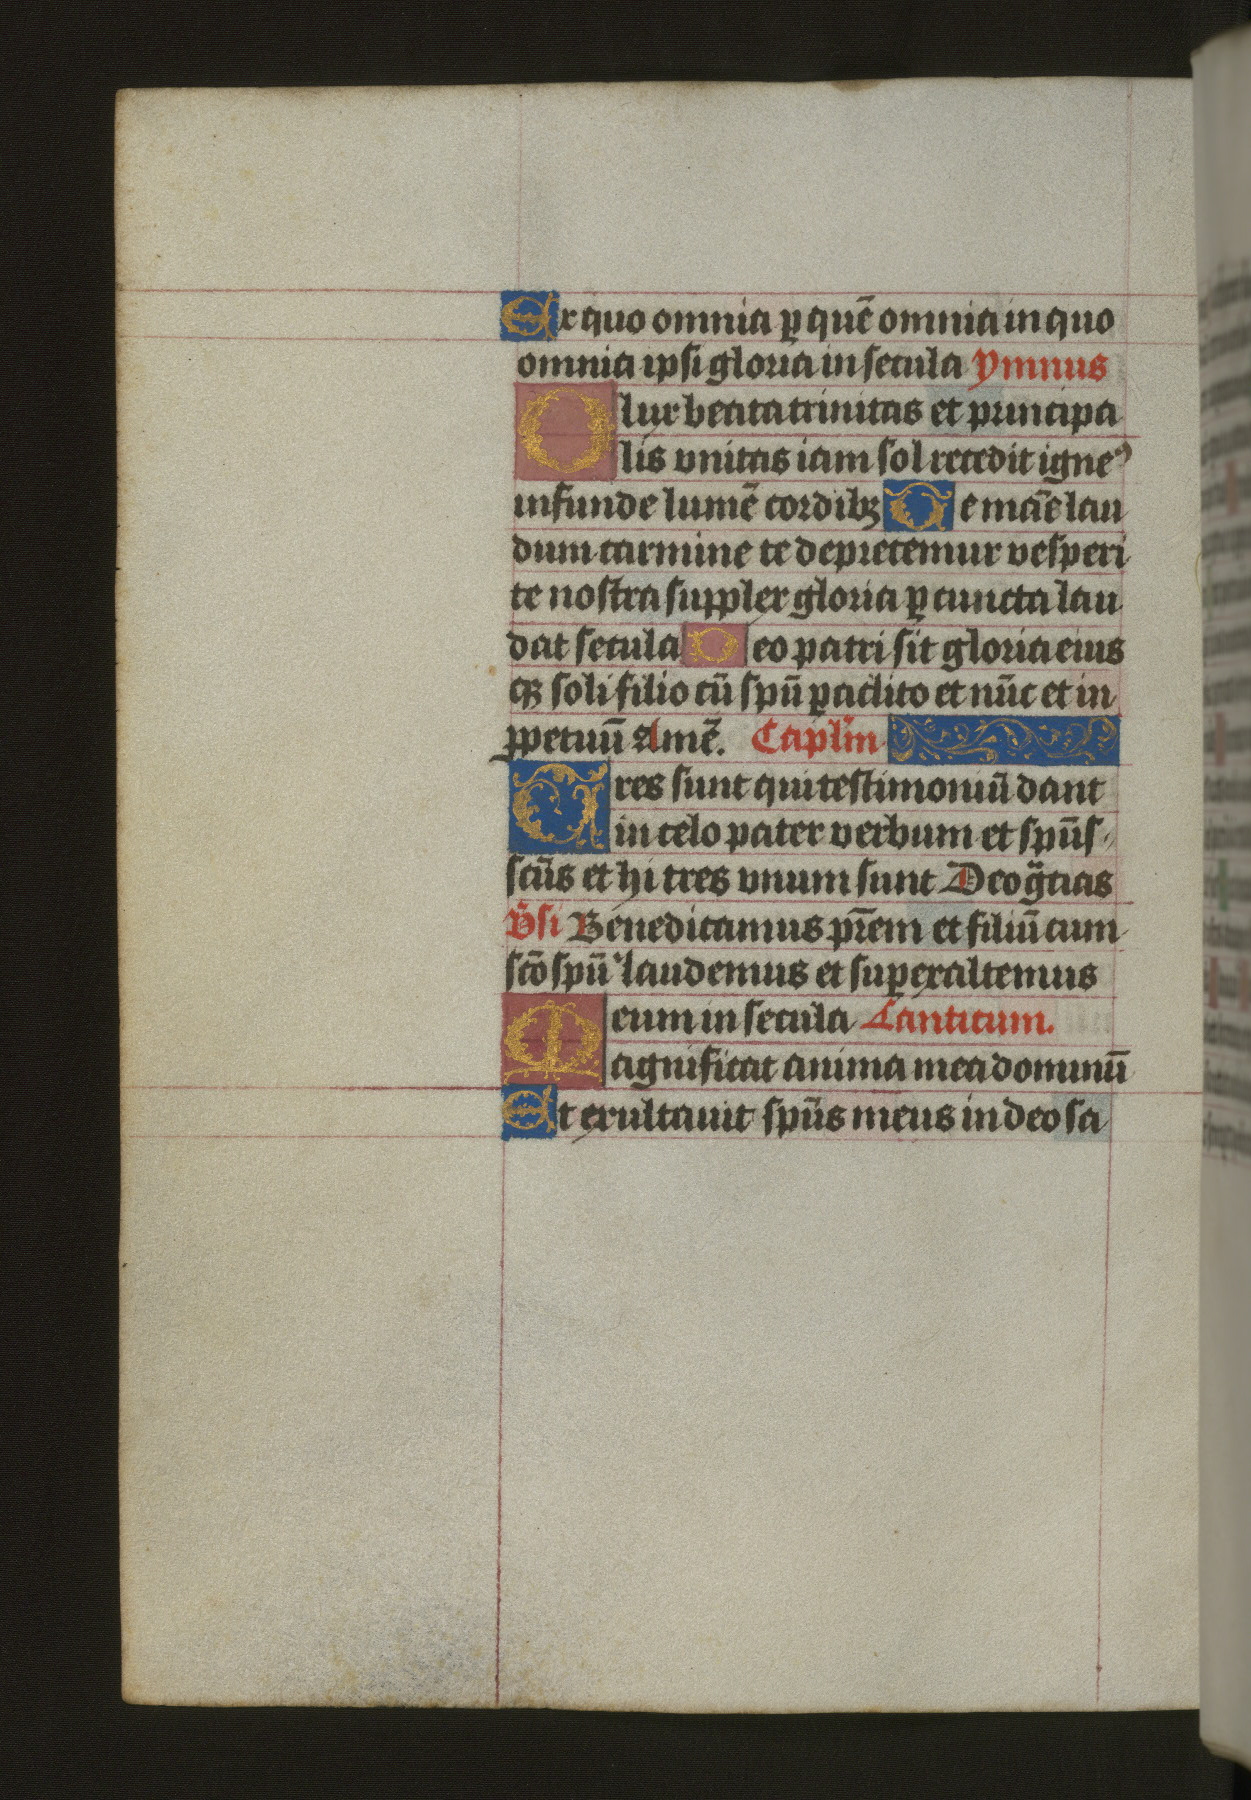 Ex quo omnia ꝑ quē omnia in quo
omnia ipsi gloria in secula Ymnus
O lux beata trinitas et principa
lis vnitas iam sol recedit igneꝰ
infunde lumē cordibꝫ Te mane lau
dum carmine te deprecemur vesperi
te nostra supplex gloria ꝑ cuncta lau
dat secula Deo patri sit gloria eius
qꝫ soli filio cū spū paclito et nūc et in
ꝑpetuū Amē. Caplm̄
Tres sunt qui testimoniū dant
in celo pater verbum et spūs
scūs et hi tres vnum sunt Deo gr̄cias
Vſi Benedicamus pr̄em et filiū cum
scō spū laudemus et superexaltemus
eum in secula Canticum.
Magnificat anima mea dominū
Et exultauit spūs meus in deo sa